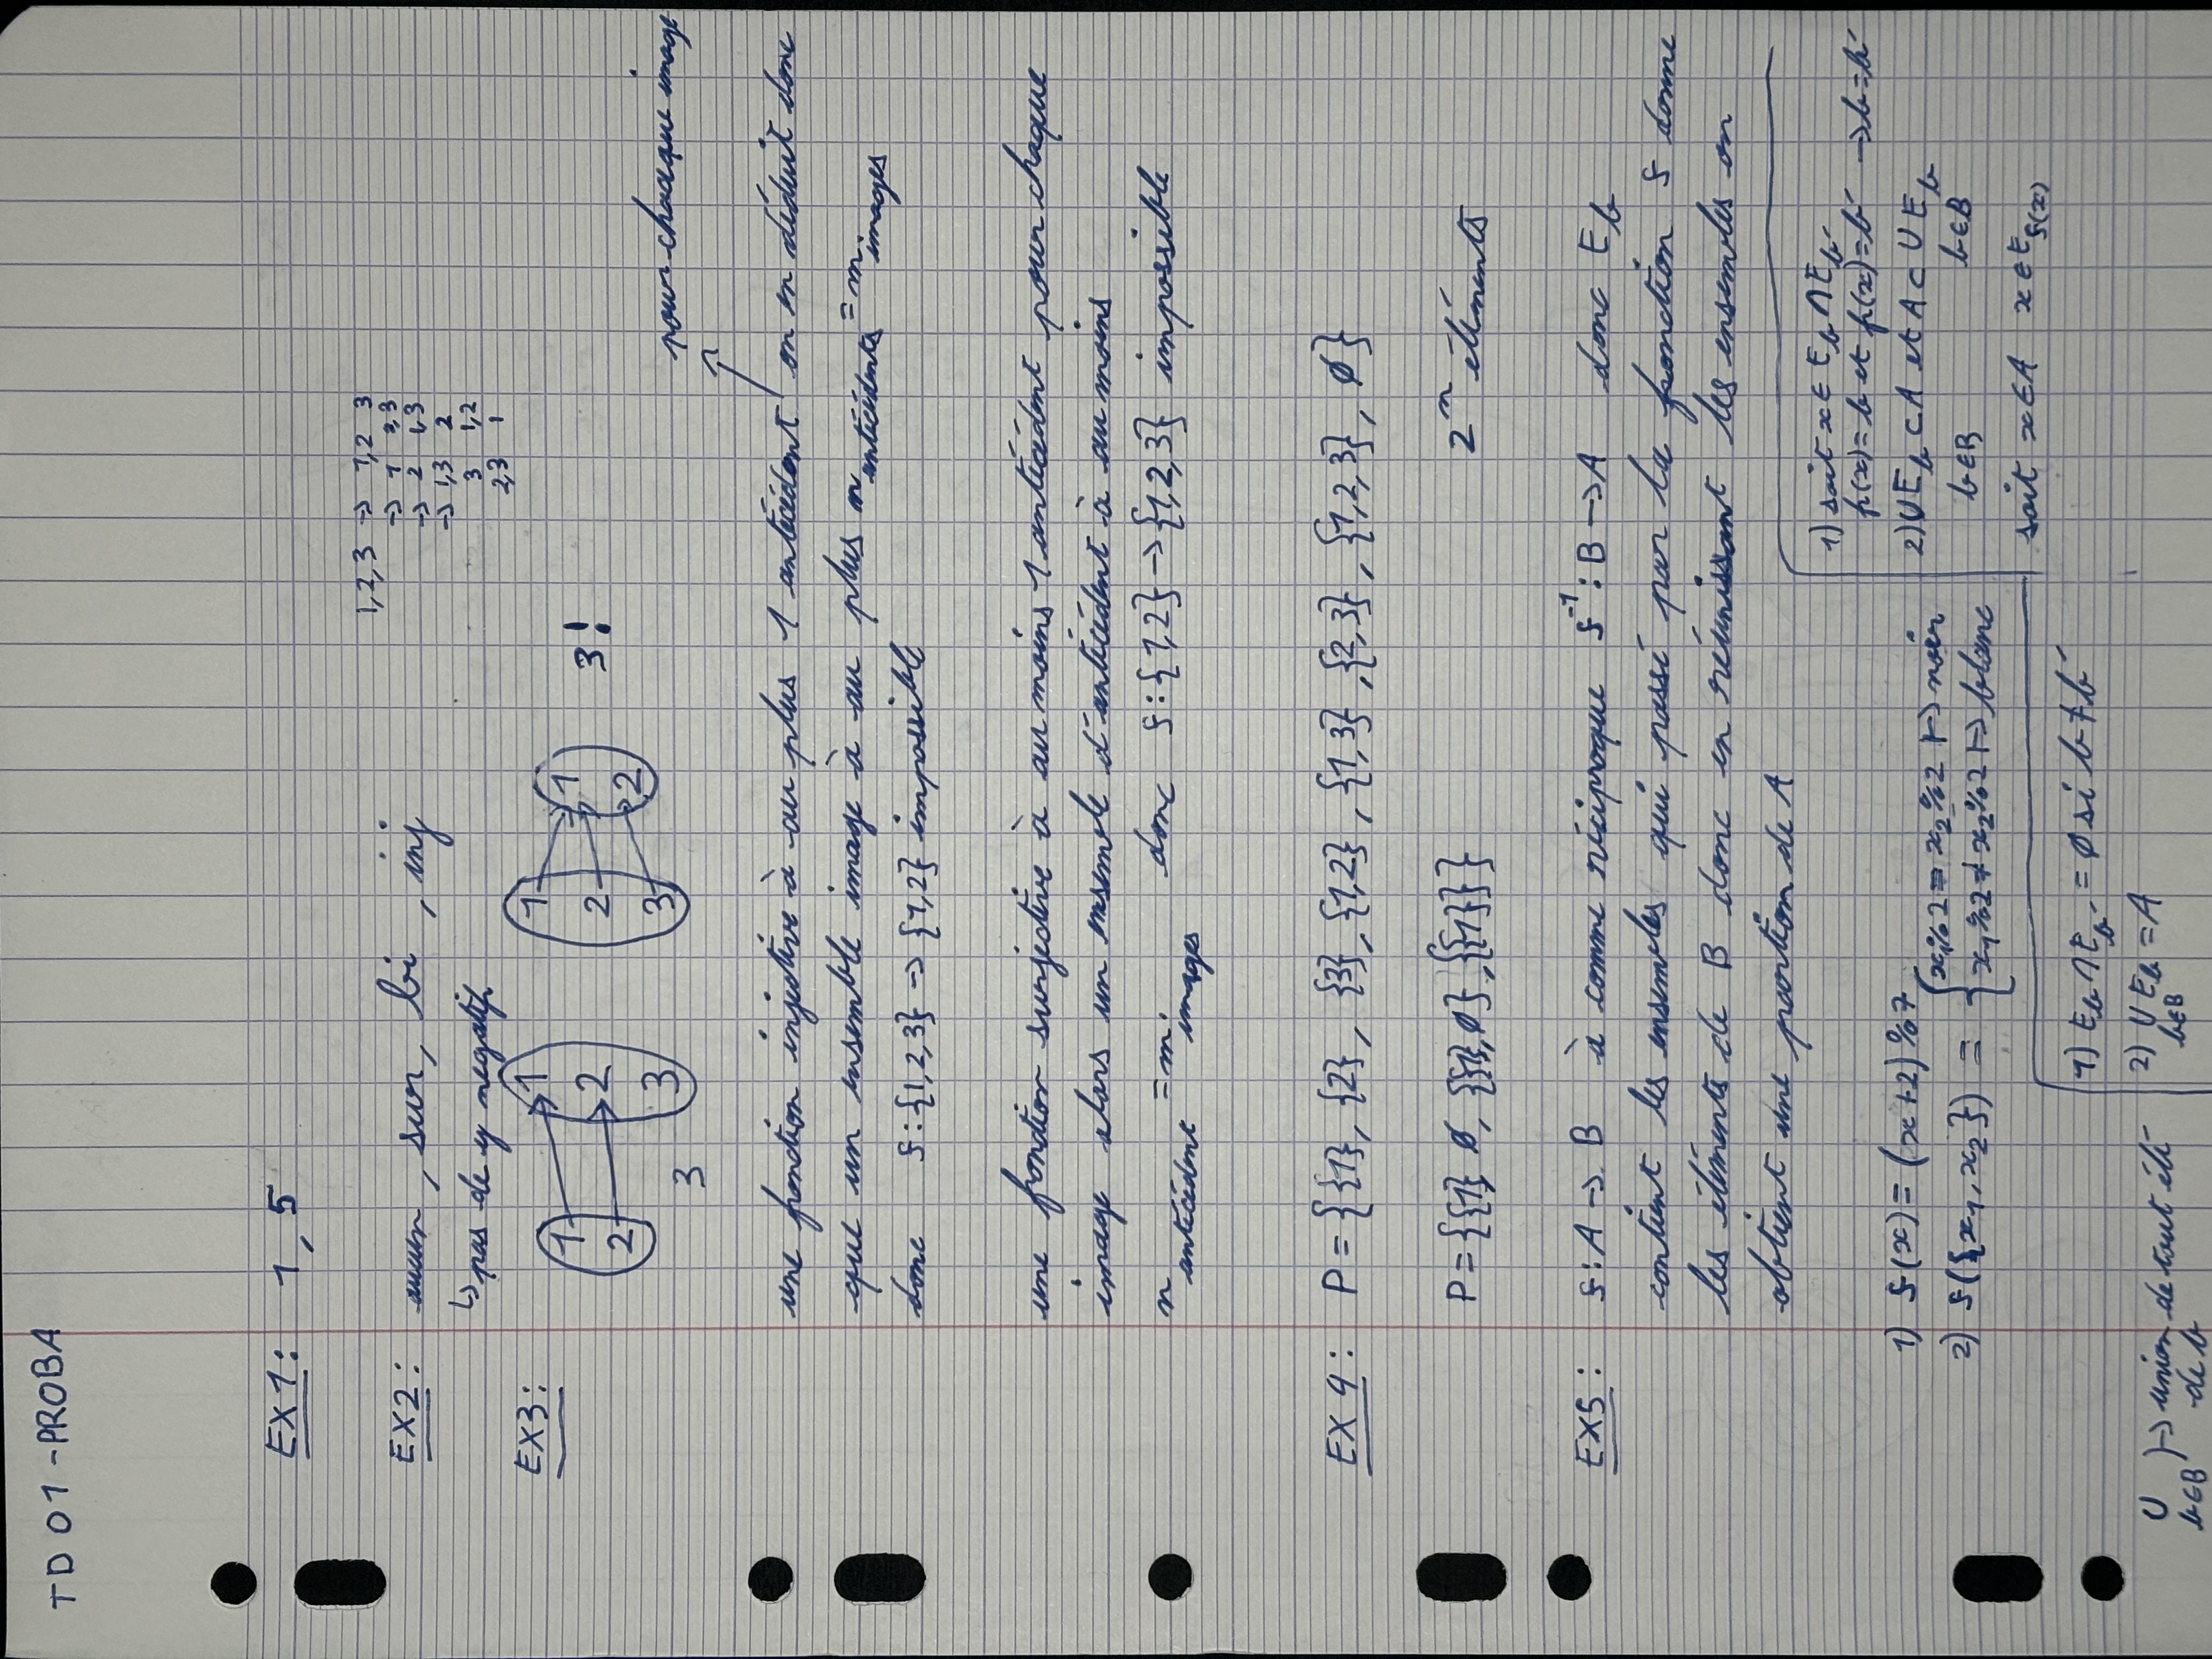 TD 01 - PROBA
EX1: 1, 5
EX2: aucun, sur, bi, inj
↳ pas de y negatif
1,2,3 → 1,2 3
→ 1 2,3
→ 2 1,3
→ 1,3 2
3 1,2
2,3 1
EX3:
1 2
1 2 3
3
1 2 3
1 2
3!
pour chacque image
une fonction injective à au plus 1 antécédent on en déduit donc
que un ensemble image à au plus n antécédents = m images
donc f: {1,2,3} → {1,2} impossible
une fonction surjective à au moins 1 antécédent pour chaque
image alors un ensemble d'antécédent à au moins
n antécédent = m images donc f: {1,2} → {1,2,3} impossible
EX 4: P = {{1}, {2}, {3}, {1,2}, {1,3}, {2,3}, {1,2,3}, ∅}
P = {{1} ∅, {{1},∅}, {{1}}}
2ⁿ éléments
EX5: f: A → B à comme réciproque f⁻¹: B → A donc E_b
contient les ensembles qui passé par la fonction f donne
les éléments de B donc en réunissant les ensembles on
obtient une partion de A
1) f(x) = (x+2) % 7
2) f({x₁, x₂}) = { x₁%2 = x₂%2 ↦ noir
x₁%2 ≠ x₂%2 ↦ blanc
1) soit x ∈ E_b ∩ E_b'
f(x) = b et f(x) = b' → b = b'
2) ∪ E_b ⊂ A et A ⊂ ∪ E_b
b∈B b∈B
soit x ∈ A x ∈ E_f(x)
1) E_b ∩ E_b' = ∅ si b ≠ b'
2) ∪ E_b = A
b∈B
∪ ) → union de tout élt
b∈B de b